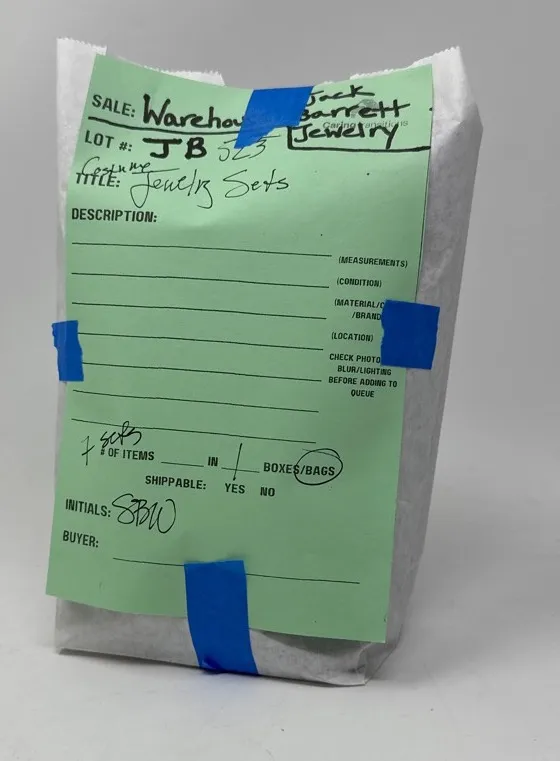 SALE: Warehou Jack Barrett
LOT #: JB 523 Jewelry
Costume
TITLE: Jewelry Sets
DESCRIPTION:
(MEASUREMENTS)
(CONDITION)
(MATERIAL/C
/BRAND
(LOCATION)
CHECK PHOTO
BLUR/LIGHTING
BEFORE ADDING TO
QUEUE
7 sets
# OF ITEMS IN 1 BOXES/BAGS
SHIPPABLE: YES NO
INITIALS: SBW
BUYER: